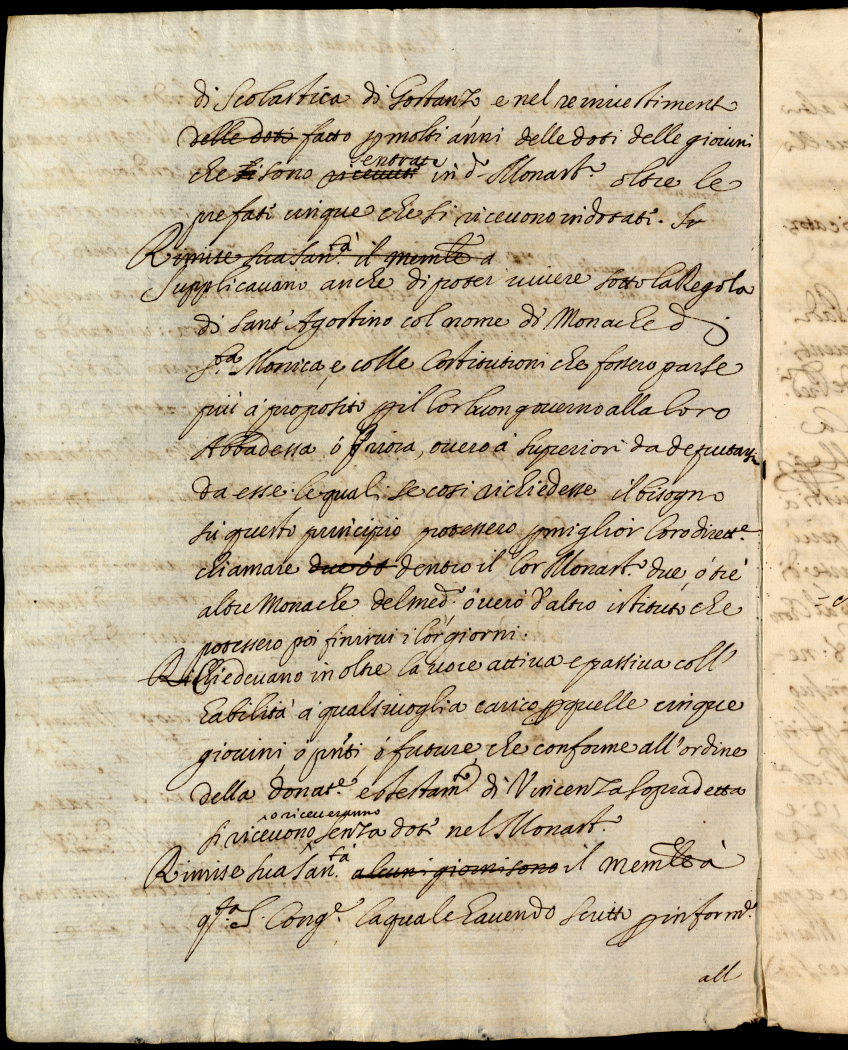 di Scolastica di Gostanzo e nel reinvestimento
delle doti fatto p molti anni delle doti delle giovini
entrate
che si sono ricevute in d.o Monast.o oltre le
prefati cinque che si ricevono indotati. Su
Rimise sua San.tà il mem.le a
Supplicavano anche di poter vivere sotto la Regola
di Sant'Agostino col nome di Monache d
S.ta Monica, e colle Costitutioni che fossero parse
più a proposito p il lor buon governo alla loro
Abbadessa ó Priora, overo a Superiori da deputarsi
da esse: le quali se così richiedesse il bisogno
su questo principio potessero p miglior loro direz.e
chiamare due ó t dentro il lor Monast.o due, ó tré
altre Monache del med.o ó vero d'altro istituto che
potessero poi finirvi i lor giorni.
Richiedevano in oltre la voce attiva e passiva coll'
habilità a qualsivoglia carico p quelle cinque
giovini ó pñti ó future, che conforme all'ordine
della donat.e e testam.o di Vincenza sopradetta
o riceveranno
si ricevono senza doti nel Monast.o
Rimise sua San.tà alcuni giorni sono il mem.le à
q.ta S. Cong.e la quale havendo scritto p inform.e
all